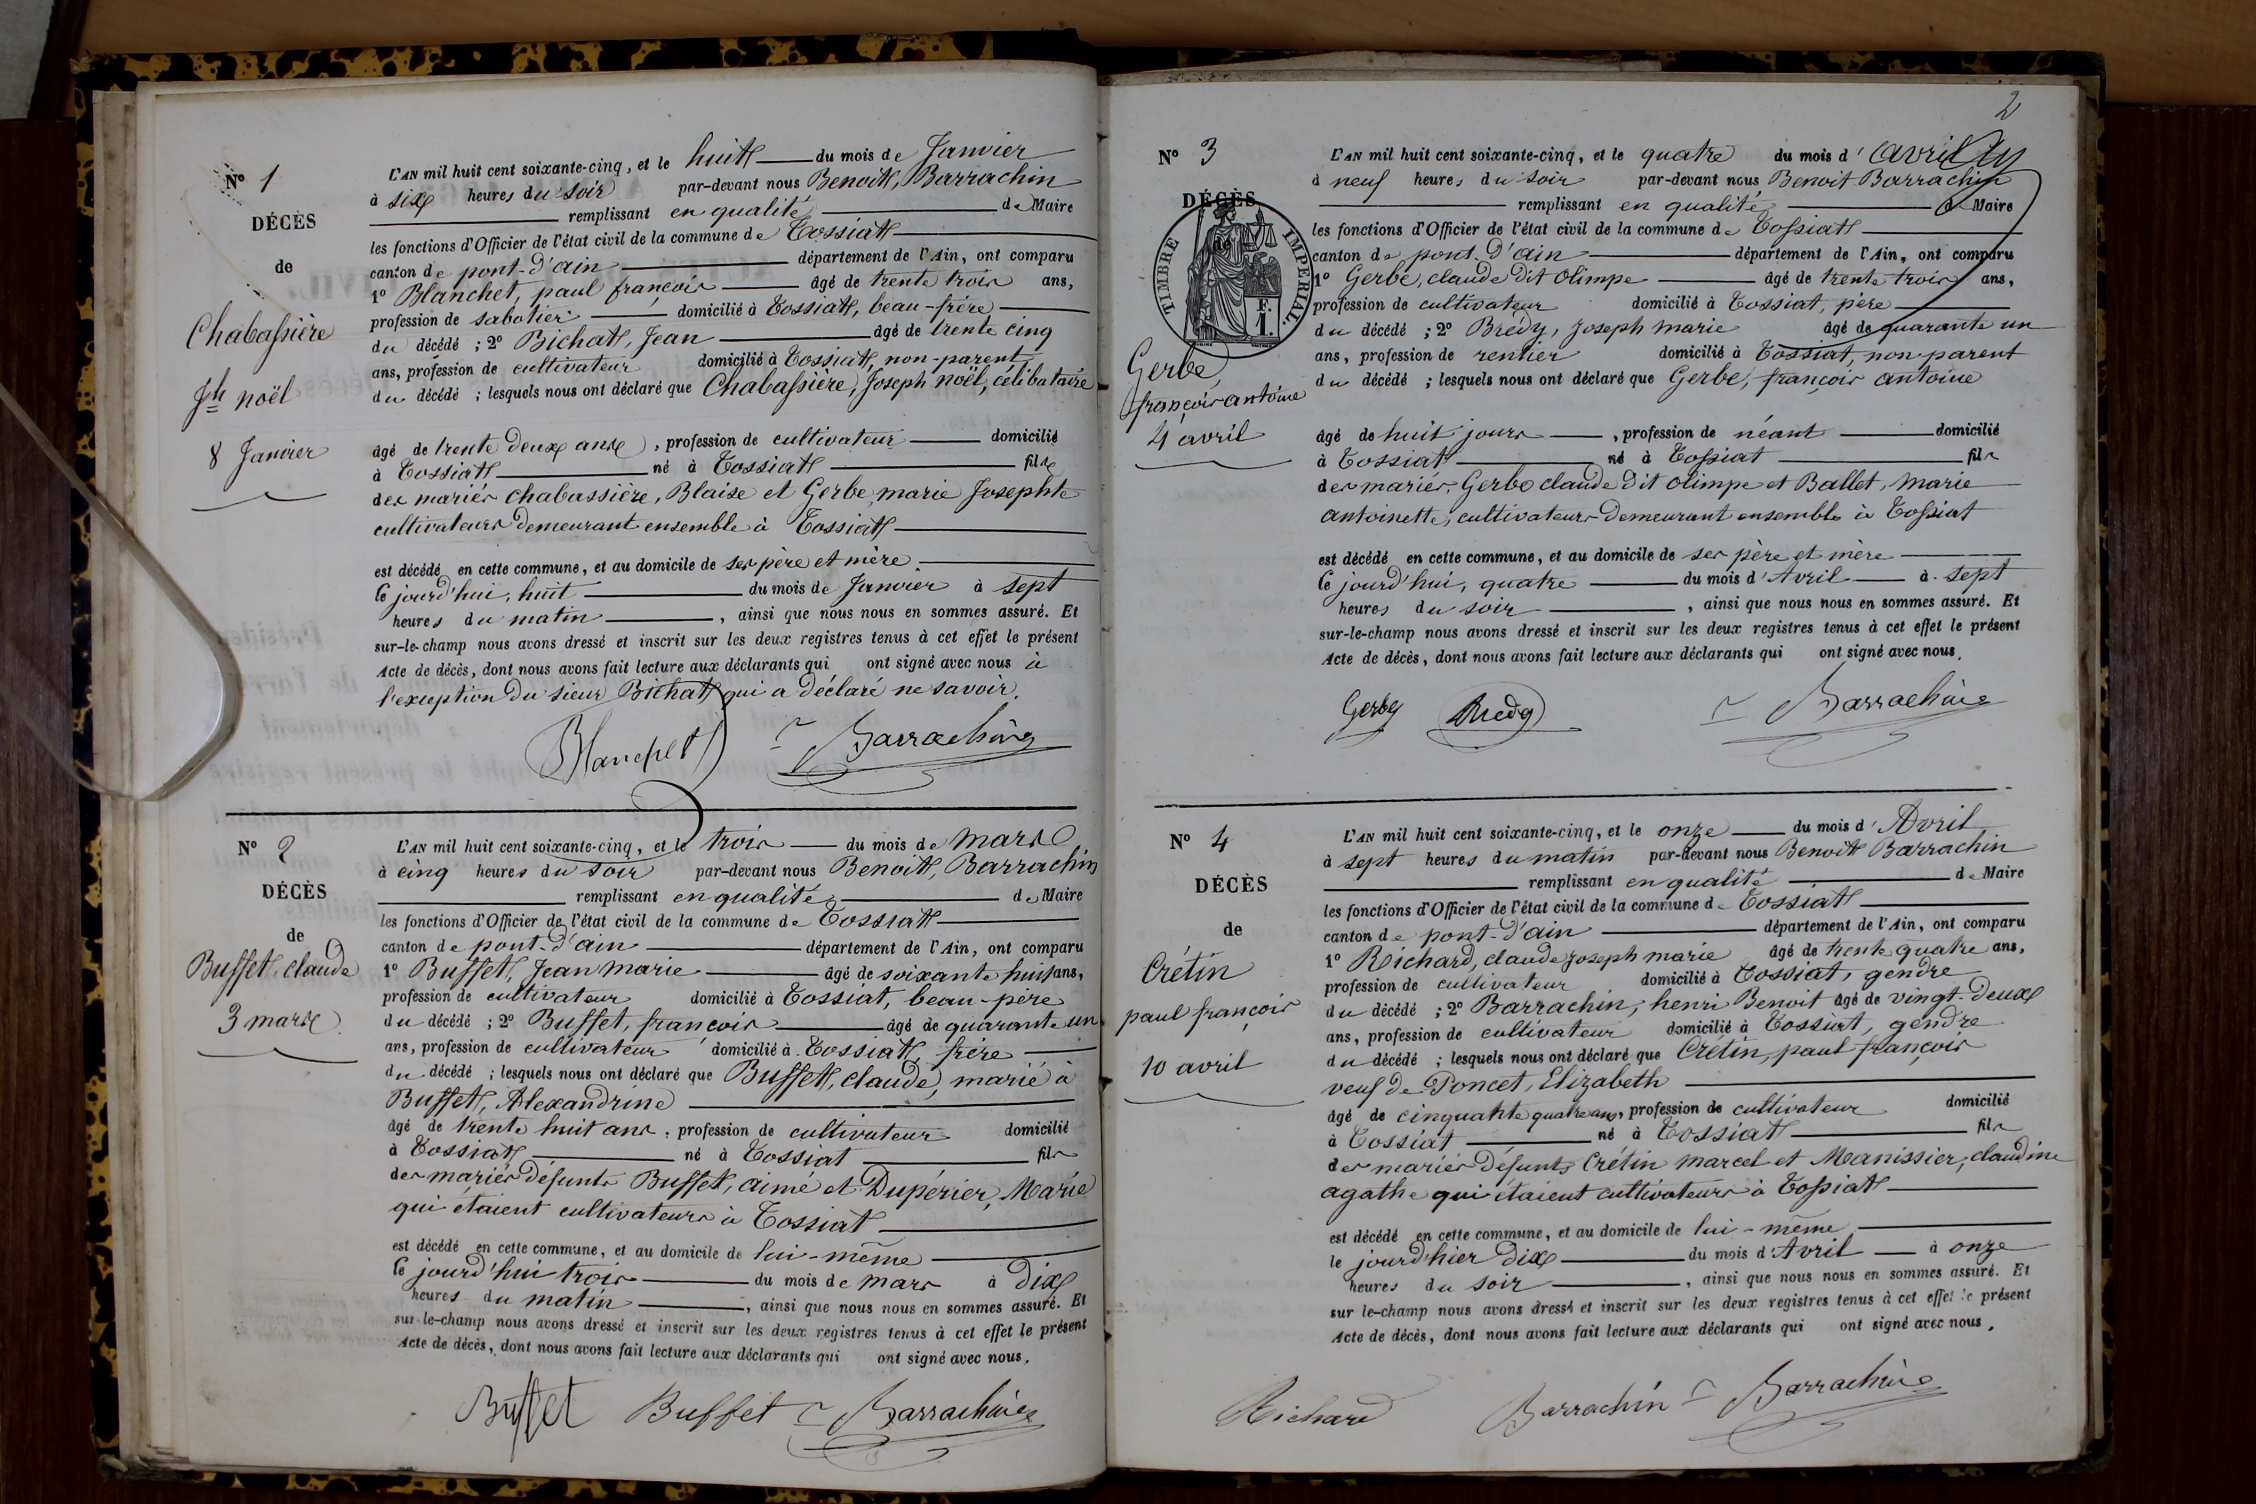 N° 1
DÉCÈS
de
Chabassière
Jh noël
8 Janvier
L'AN mil huit cent soixante-cinq, et le huit du mois de Janvier
à six heures du soir par-devant nous Benoit, Barrachin
remplissant en qualité de Maire
les fonctions d'Officier de l'état civil de la commune de Tossiat
canton de pont-d'ain département de l'Ain, ont comparu
1° Blanchet, paul françois âgé de trente trois ans,
profession de sabotier domicilié à Tossiat, beau-frère
du décédé ; 2° Bichat, Jean âgé de trente cinq
ans, profession de cultivateur domicilié à Tossiat, non-parent
du décédé ; lesquels nous ont déclaré que Chabassière, Joseph noël, célibataire
âgé de trente deux ans, profession de cultivateur domicilié
à Tossiat né à Tossiat fils
des mariés chabassière, Blaise et Gerbe, marie Josephte
cultivateurs demeurant ensemble à Tossiat
est décédé en cette commune, et au domicile de ses père et mère
le jourd'hui, huit du mois de Janvier à sept
heures du matin, ainsi que nous nous en sommes assuré. Et
sur-le-champ nous avons dressé et inscrit sur les deux registres tenus à cet effet le présent
Acte de décès, dont nous avons fait lecture aux déclarants qui ont signé avec nous à
l'exception du sieur Bichat qui a déclaré ne savoir.
Blanchet Barrachin
N° 2
DÉCÈS
de
Buffet, claude
3 mars
L'AN mil huit cent soixante-cinq, et le trois du mois de mars
à cinq heures du soir par-devant nous Benoit, Barrachin
remplissant en qualité de Maire
les fonctions d'Officier de l'état civil de la commune de Tossiat
canton de pont-d'ain département de l'Ain, ont comparu
1° Buffet, Jean marie âgé de soixante huit ans,
profession de cultivateur domicilié à Tossiat, beau-père
du décédé ; 2° Buffet, françois âgé de quarante un
ans, profession de cultivateur domicilié à Tossiat, frère
du décédé ; lesquels nous ont déclaré que Buffet, claude, marié à
Buffet, Alexandrine
âgé de trente huit ans, profession de cultivateur domicilié
à Tossiat né à Tossiat fils
des mariés défunts Buffet, aimé et Dupérier, Marie
qui étaient cultivateurs à Tossiat
est décédé en cette commune, et au domicile de lui-même
le jourd'hui trois du mois de mars à dix
heures du matin, ainsi que nous nous en sommes assuré. Et
sur-le-champ nous avons dressé et inscrit sur les deux registres tenus à cet effet le présent
Acte de décès, dont nous avons fait lecture aux déclarants qui ont signé avec nous.
Buffet Buffet Barrachin
2
N° 3
DÉCÈS
de
TIMBRE IMPÉRIAL.
F.
1.
Gerbe
françois antoine
4 avril
L'AN mil huit cent soixante-cinq, et le quatre du mois d'avril
à neuf heures du soir par-devant nous Benoit Barrachin
remplissant en qualité de Maire
les fonctions d'Officier de l'état civil de la commune de Tossiat
canton de pont-D'ain département de l'Ain, ont comparu
1° Gerbe, claude dit olimpe âgé de trente trois ans,
profession de cultivateur domicilié à Tossiat, père
du décédé ; 2° Brédy, Joseph marie âgé de quarante un
ans, profession de rentier domicilié à Tossiat, non-parent
du décédé ; lesquels nous ont déclaré que Gerbe, françois antoine
âgé de huit jours, profession de néant domicilié
à Tossiat né à Tossiat fils
des mariés, Gerbe claude dit olimpe et Ballet, marie
antoinette, cultivateurs demeurant ensemble à Tossiat
est décédé en cette commune, et au domicile de ses père et mère
le jourd'hui, quatre du mois d'Avril à sept
heures du soir, ainsi que nous nous en sommes assuré. Et
sur-le-champ nous avons dressé et inscrit sur les deux registres tenus à cet effet le présent
Acte de décès, dont nous avons fait lecture aux déclarants qui ont signé avec nous.
Gerbe Bredy Barrachin
N° 4
DÉCÈS
de
Crétin
paul françois
10 avril
L'AN mil huit cent soixante-cinq, et le onze du mois d'Avril
à sept heures du matin par-devant nous Benoit Barrachin
remplissant en qualité de Maire
les fonctions d'Officier de l'état civil de la commune de Tossiat
canton de pont-d'ain département de l'Ain, ont comparu
1° Richard, claude joseph marie âgé de trente quatre ans,
profession de cultivateur domicilié à Tossiat, gendre
du décédé ; 2° Barrachin, henri Benoit âgé de vingt-deux
ans, profession de cultivateur domicilié à Tossiat, gendre
du décédé ; lesquels nous ont déclaré que Crétin, paul françois
veuf de Poncet, Elizabeth
âgé de cinquante quatre ans, profession de cultivateur domicilié
à Tossiat né à Tossiat fils
des mariés défunts Crétin marcel et Manissier, claudine
agathe qui étaient cultivateurs à Tossiat
est décédé en cette commune, et au domicile de lui-même
le jourd'hier dix du mois d'Avril à onze
heures du soir, ainsi que nous nous en sommes assuré. Et
sur le-champ nous avons dressé et inscrit sur les deux registres tenus à cet effet le présent
Acte de décès, dont nous avons fait lecture aux déclarants qui ont signé avec nous.
Richard Barrachin Barrachin